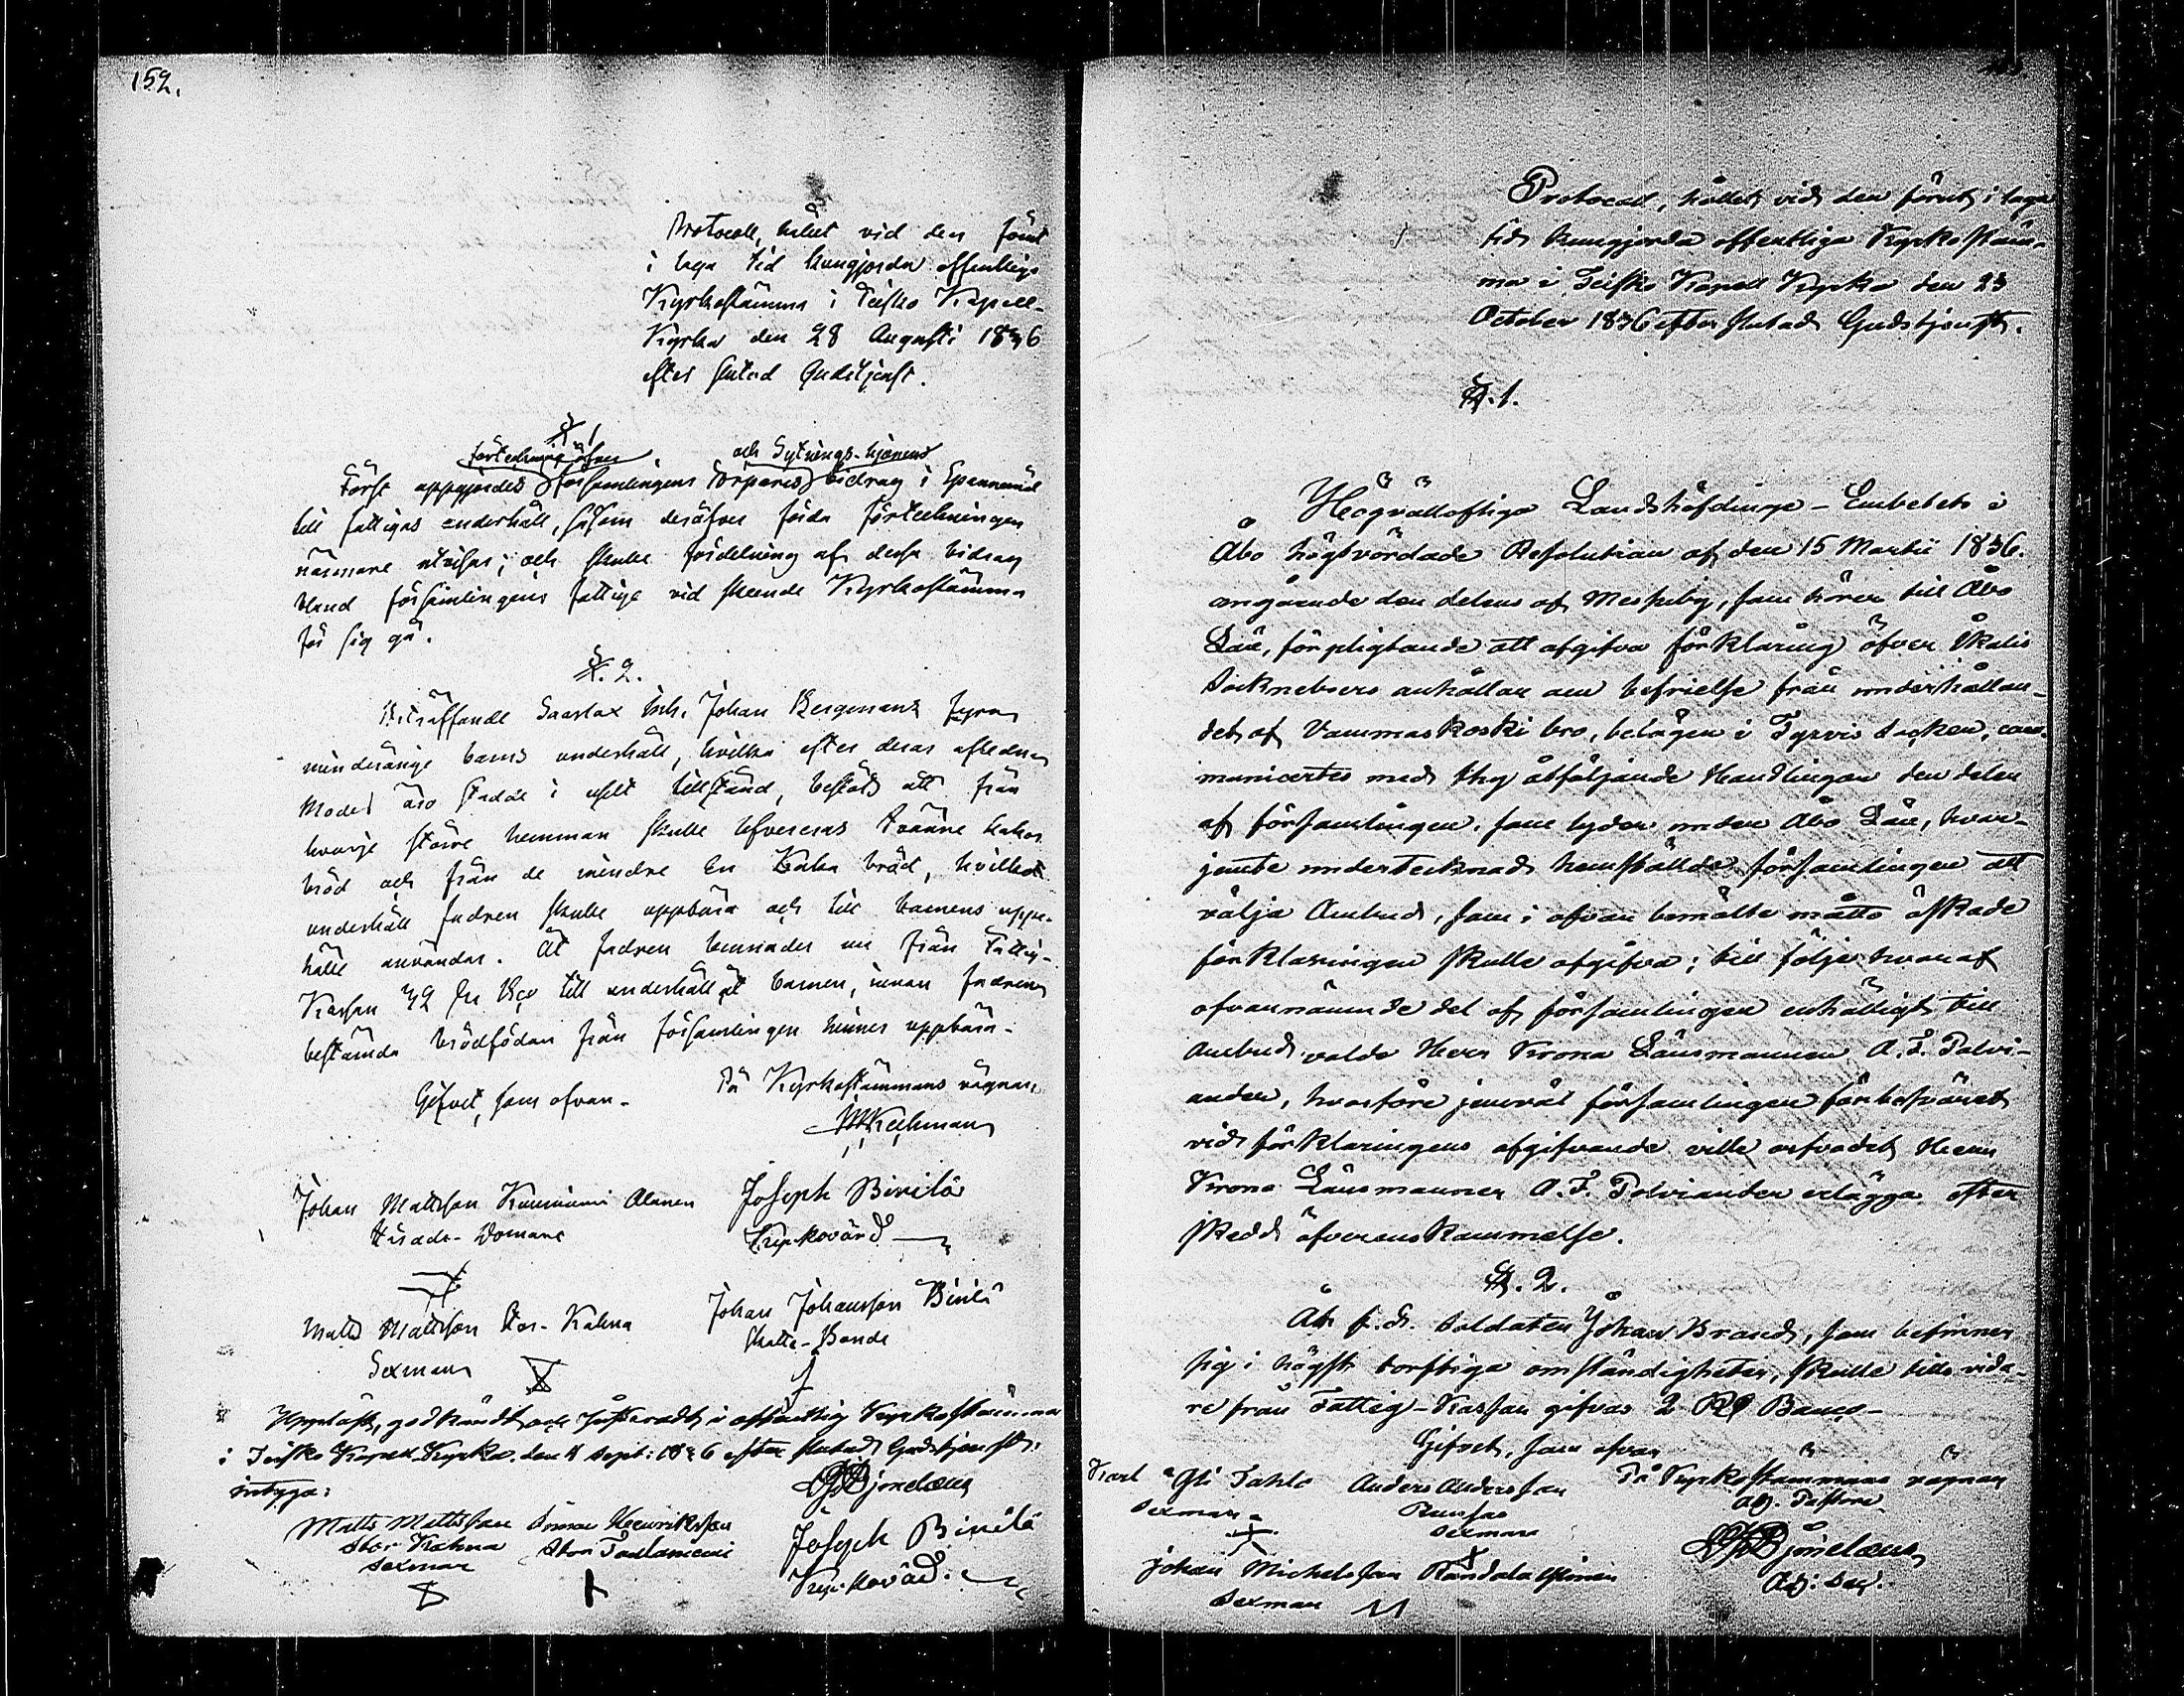 152.
Protocoll, hållit vid den förut
i laga tid kungjorda offentliga
Kyrkostämma i Teisko Kapell-
Kyrka den 28 Augusti 1836
efter slutad Gudstjenst.
§ 1
förteckning öfver och Sytnings-hjonens
Först uppgjordes församlingens Torpares bidrag i Spannemål
till fattigas underhåll, såsom deröfver förda förteckningen
närmare utvisar; och skulle fördelning af dessa bidrag
bland församlingens fattige vid skeende Kyrkostämma
för sig gå.
§. 2.
Beträffande Inh. Johan Bergmans fyra
minderårige barns underhåll, hvilka efter deras aflidna
Moder äro stadde i uselt tillstånd, beslöts att från
hvarje större hemman skulle lefvereras tvänne kakor
bröd och från de mindre En Kaka bröd, hvilket
underhåll fadren skulle uppbära och till barnens uppe-
hälle användas. Åt fadren lemnades nu från Fattig-
Kassan 32 till underhåll åt barnen, innan fadren
bestämda brödfödan från församlingen hinner uppbära-
Gifvet, som ofvan- På Kyrkostämmans vägnar
Johan Mattsson Kuminiemi Alanen Joseph Birilä
Härads-Domare Kyrkovärd
Matts Mattsson Stor-Kahna Johan Johansson Birilä
Sexman Skatte-Bonde
Uppläst, godkändt och justeradt i offentlig Kyrkostämma
i Teisko Kapell-Kyrka den 4 Sept: 1836 efter slutad Gudstjenst,
intyga:
Matts Mattsson Simon Henriksson Joseph Birilä
Stor Kahna Stor Paulaniemi Kyrkovärd.
Sexman
Protocoll, hållet vid den förut i laga
tid kungjorda offentliga Kyrkostäm-
ma i Teisko Kapell Kyrka den 23
October 1836 efter slutad Gudstjenst.
§. 1.
Högvällofliga Landshöfdinge-Embetets i
Åbo högtvördade Resolution af den 15 Martii 1836.
angående den delens af Meskuby, som hörer till Åbo
Län, förpligtande att afgifva förklaring öfver Ikalis
Sockneboers anhållan om befrielse från underhållan-
det af Vammaskoski bro, belägen i Tyrvis Socken, com-
municertes med thy åtföljande Handlingar den delen
af församlingen, som lyder under Åbo Län, hvar-
jemte undertecknad hemställde församlingen att
välja Ombud, som i ofvan bemälte måtto äskade
förklaringen skulle afgifva; till följe hvaraf
ofvannämnde del af församlingen enhälligt till
Ombud valde Herr Krono Länsmannen A. F. Polvi-
ander, hvarföre jemväl församlingen för besväret
vid förklaringens afgifvande ville arfvodet Herrn
Krono Länsmannen A. F. Polviander erlägga efter
skedd öfverenskommelse.
§. 2.
Åt f.d. Soldaten Johan Brand, som befinner
sig i högst torftiga omständigheter, skulle tills vida-
re från Fattig-Kassan gifvas 2 Banco-
Gifvet, som ofvan
Karl Tahlo Anders Andersson På Kyrkostämmans vägnar
Sexman Sexman Adj. Pastore
Johan Michelsson
Sexman